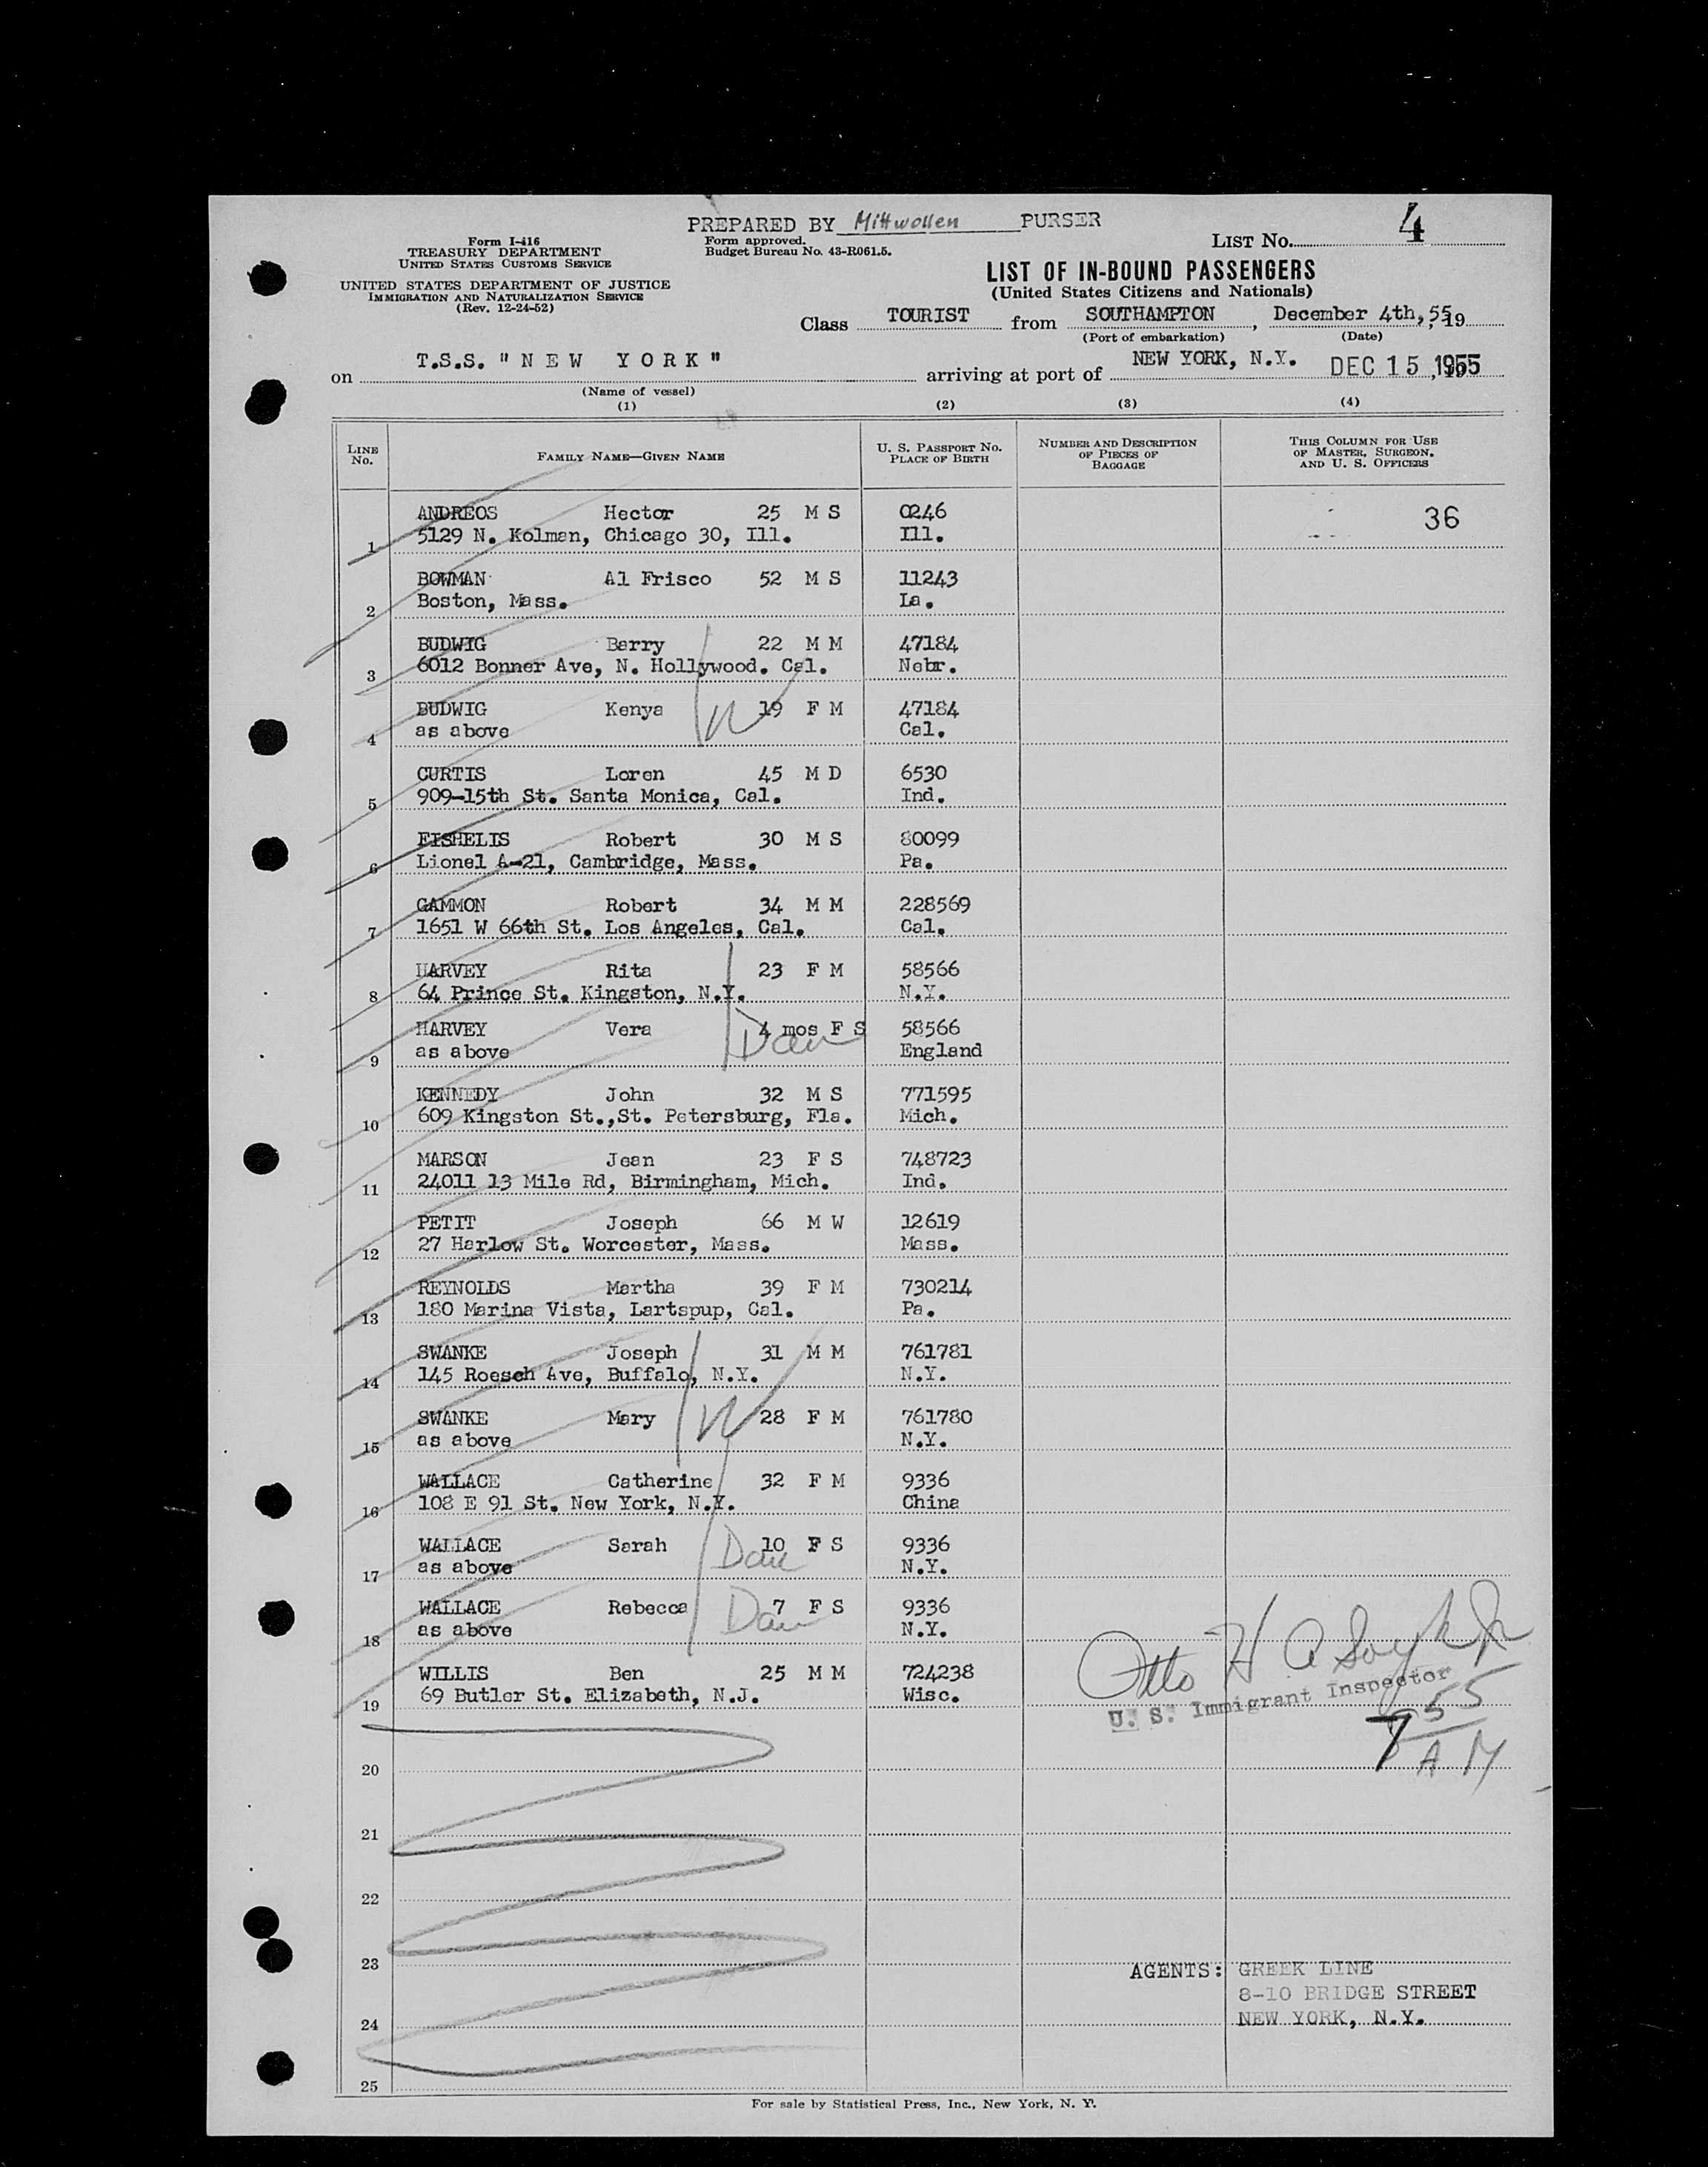 PREPARED BY Mittwollen PURSER
Form I-416
TREASURY DEPARTMENT
UNITED STATES CUSTOMS SERVICE
UNITED STATES DEPARTMENT OF JUSTICE
IMMIGRATION AND NATURALIZATION SERVICE
(Rev. 12-24-52)
Form approved.
Budget Bureau No. 43-R061.5.
LIST No. 4
LIST OF IN-BOUND PASSENGERS
(United States Citizens and Nationals)
Class TOURIST from SOUTHAMPTON, December 4th, 55, 19
(Port of embarkation) (Date)
on T.S.S. "NEW YORK" arriving at port of NEW YORK, N.Y. DEC 15, 1955
(Name of vessel)
(1) (2) (3) (4)
LINE No. FAMILY NAME—GIVEN NAME U. S. PASSPORT NO. PLACE OF BIRTH NUMBER AND DESCRIPTION OF PIECES OF BAGGAGE THIS COLUMN FOR USE OF MASTER, SURGEON, AND U. S. OFFICERS
ANDREOS Hector 25 M S 0246 36
1 5129 N. Kolman, Chicago 30, Ill. Ill.
BOWMAN Al Frisco 52 M S 11243
2 Boston, Mass. La.
BUDWIG Barry 22 M M 47184
3 6012 Bonner Ave, N. Hollywood. Cal. Nebr.
BUDWIG Kenya 19 F M 47184
4 as above Cal.
CURTIS Loren 45 M D 6530
5 909-15th St. Santa Monica, Cal. Ind.
EISHELIS Robert 30 M S 80099
6 Lionel A-21, Cambridge, Mass. Pa.
GAMMON Robert 34 M M 228569
7 1651 W 66th St. Los Angeles, Cal. Cal.
HARVEY Rita 23 F M 58566
8 64 Prince St. Kingston, N.Y. N.Y.
HARVEY Vera 4 mos F S 58566
9 as above England
KENNEDY John 32 M S 771595
10 609 Kingston St.,St. Petersburg, Fla. Mich.
MARSON Jean 23 F S 748723
11 24011 13 Mile Rd, Birmingham, Mich. Ind.
PETIT Joseph 66 M W 12619
12 27 Harlow St. Worcester, Mass. Mass.
REYNOLDS Martha 39 F M 730214
13 180 Marina Vista, Lartspup, Cal. Pa.
SWANKE Joseph 31 M M 761781
14 145 Roesch Ave, Buffalo, N.Y. N.Y.
SWANKE Mary 28 F M 761780
15 as above N.Y.
WALLACE Catherine 32 F M 9336
16 108 E 91 St. New York, N.Y. China
WALLACE Sarah 10 F S 9336
17 as above N.Y.
WALLACE Rebecca 7 F S 9336
18 as above N.Y.
WILLIS Ben 25 M M 724238
19 69 Butler St. Elizabeth, N.J. Wisc.
Otto H
U. S. Immigrant Inspector
7 55 AM
20
21
22
23 AGENTS: GREEK LINE
8-10 BRIDGE STREET
24 NEW YORK, N.Y.
25
For sale by Statistical Press, Inc., New York, N. Y.